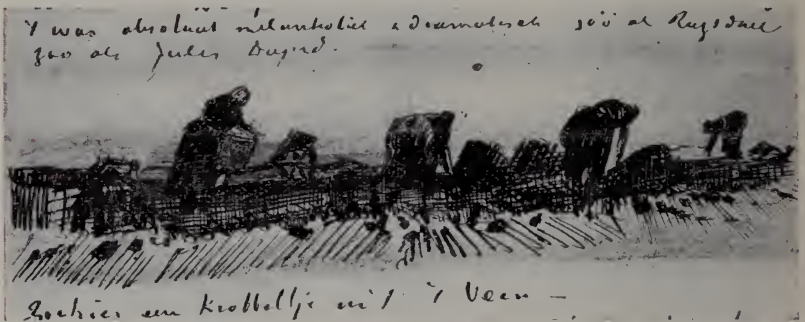 't was absoluut melankoliek & dramatisch zóó als Ruysdael
zoo als Jules Dupré.
Ziehier een krabbeltje uit 't Veen —